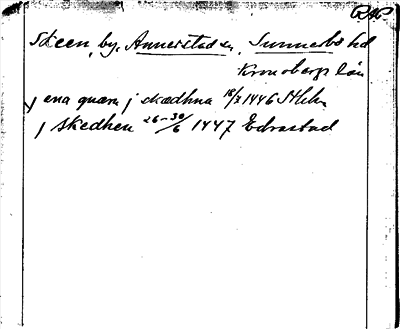 Skeen, by, Annerstad sn, Sunnerbo hd
Kronobergs län
j ena quærn j skædhna 18/2 1446 Sthlm
j skedhen 26-30/6 1447 Edrastad